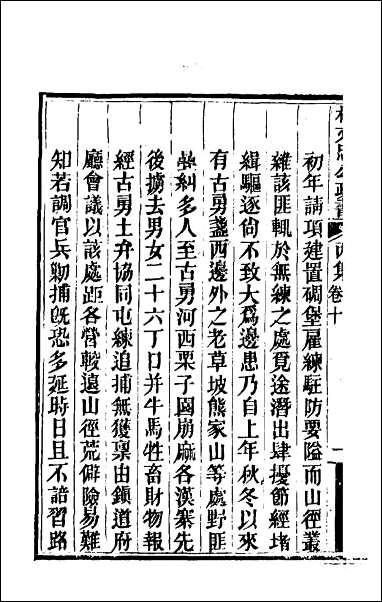 初年請項建置碉堡雇練駐防要隘而山徑叢
雜該匪輒於無練之處覓途潛出肆擾節經堵
緝驅逐尙不致大爲邊患乃自上年秋冬以來
有古勇盞西邊外之老草坡熊家山等處野匪
糾多人至古勇河西栗子園崩麻各漢寨先
後擄去男女二十六丁口并牛馬牲畜財物報
經古勇土弁協同屯練追捕無獲稟由鎭道府
廳會議以該處距各營較遠山徑荒僻險易難
知若調官兵勦捕旣恐多延時日且不諳習路
林文忠公政書 丙集卷十 一